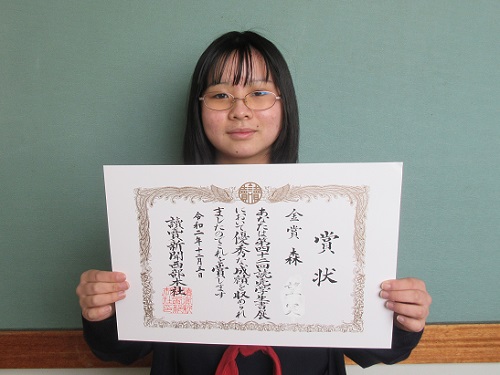 賞状
金賞 森
あなたは第四十二回読売学生書展
において優秀な成績を収められ
ましたのでこれを賞します
令和二年十二月五日
讀賣新聞西部本社